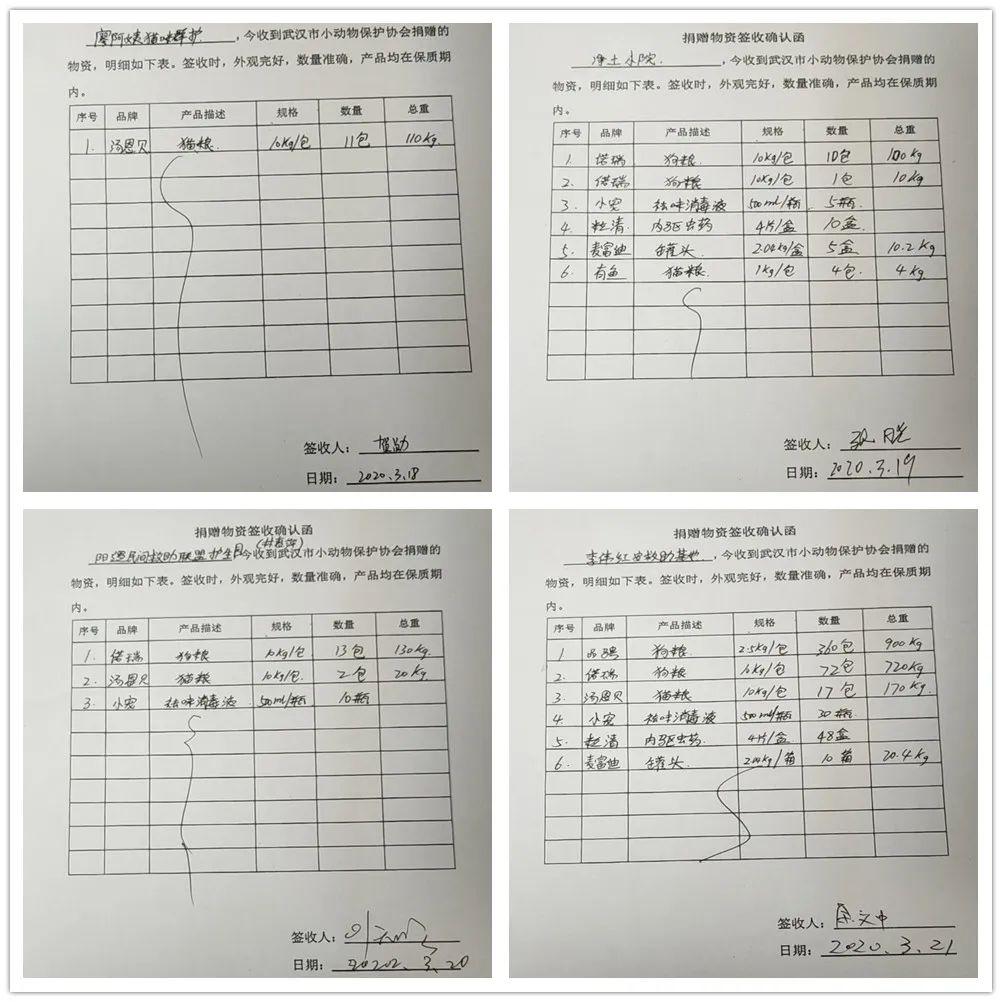 廖阿姨猫咪群护,今收到武汉市小动物保护协会捐赠的
物资，明细如下表。签收时，外观完好，数量准确，产品均在保质期
内。
序号 品牌 产品描述 规格 数量 总重
1. 汤恩贝 猫粮 10kg/包 11包 110kg
签收人：
日期：2020.3.18
捐赠物资签收确认函
净土水院,今收到武汉市小动物保护协会捐赠的
物资，明细如下表。签收时，外观完好，数量准确，产品均在保质期
内。
序号 品牌 产品描述 规格 数量 总重
1. 偌瑞 狗粮 10kg/包 10包 100kg
2. 偌瑞 狗粮 10kg/包 1包 10kg
3. 小宠 祛味消毒液 500ml/瓶 5瓶
4. 粒清 内驱虫药 4片/盒 10盒
5. 麦富迪 罐头 2.04kg/盒 5盒 10.2kg
6. 有鱼 猫粮 1kg/包 4包 4kg
签收人：
日期：2020.3.19
捐赠物资签收确认函
阳逻民间救助联盟护生园,今收到武汉市小动物保护协会捐赠的
物资，明细如下表。签收时，外观完好，数量准确，产品均在保质期
内。
序号 品牌 产品描述 规格 数量 总重
1. 偌瑞 狗粮 10kg/包 13包 130kg
2. 汤恩贝 猫粮 10kg/包 2包 20kg
3. 小宠 祛味消毒液 500ml/瓶 10瓶
签收人：
日期：20202.3.20
捐赠物资签收确认函
李伟红安救助基地,今收到武汉市小动物保护协会捐赠的
物资，明细如下表。签收时，外观完好，数量准确，产品均在保质期
内。
序号 品牌 产品描述 规格 数量 总重
1 狗粮 2.5kg/包 360包 900kg
2. 偌瑞 狗粮 10kg/包 72包 720kg
3. 汤恩贝 猫粮 10kg/包 17包 170kg
4. 小宠 祛味消毒液 500ml/瓶 30瓶
5. 粒清 内驱虫药 4片/盒 48盒
6. 麦富迪 罐头 2.04kg/箱 10箱 20.4kg
签收人：
日期：2020.3.21